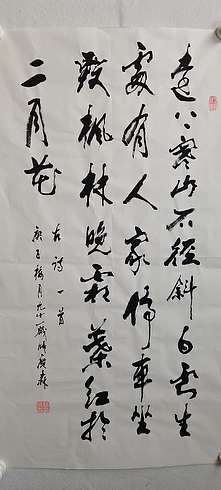 遠上寒山石徑斜白雲生
處有人家停車坐
愛楓林晚霜葉紅於
二月花
古詩一首
庚子梅月九十一歲